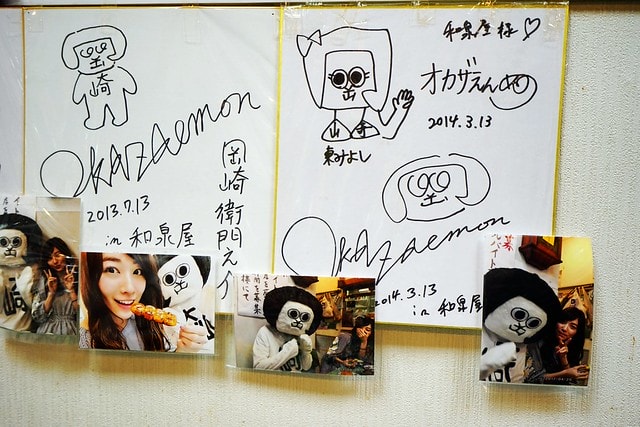 崎
Okazaemon
2013.7.13
in 和泉屋
岡崎衛門之介
和泉屋様♡
オカザえもん
2014.3.13
東みよし
Okazaemon
2014.3.13
in 和泉屋